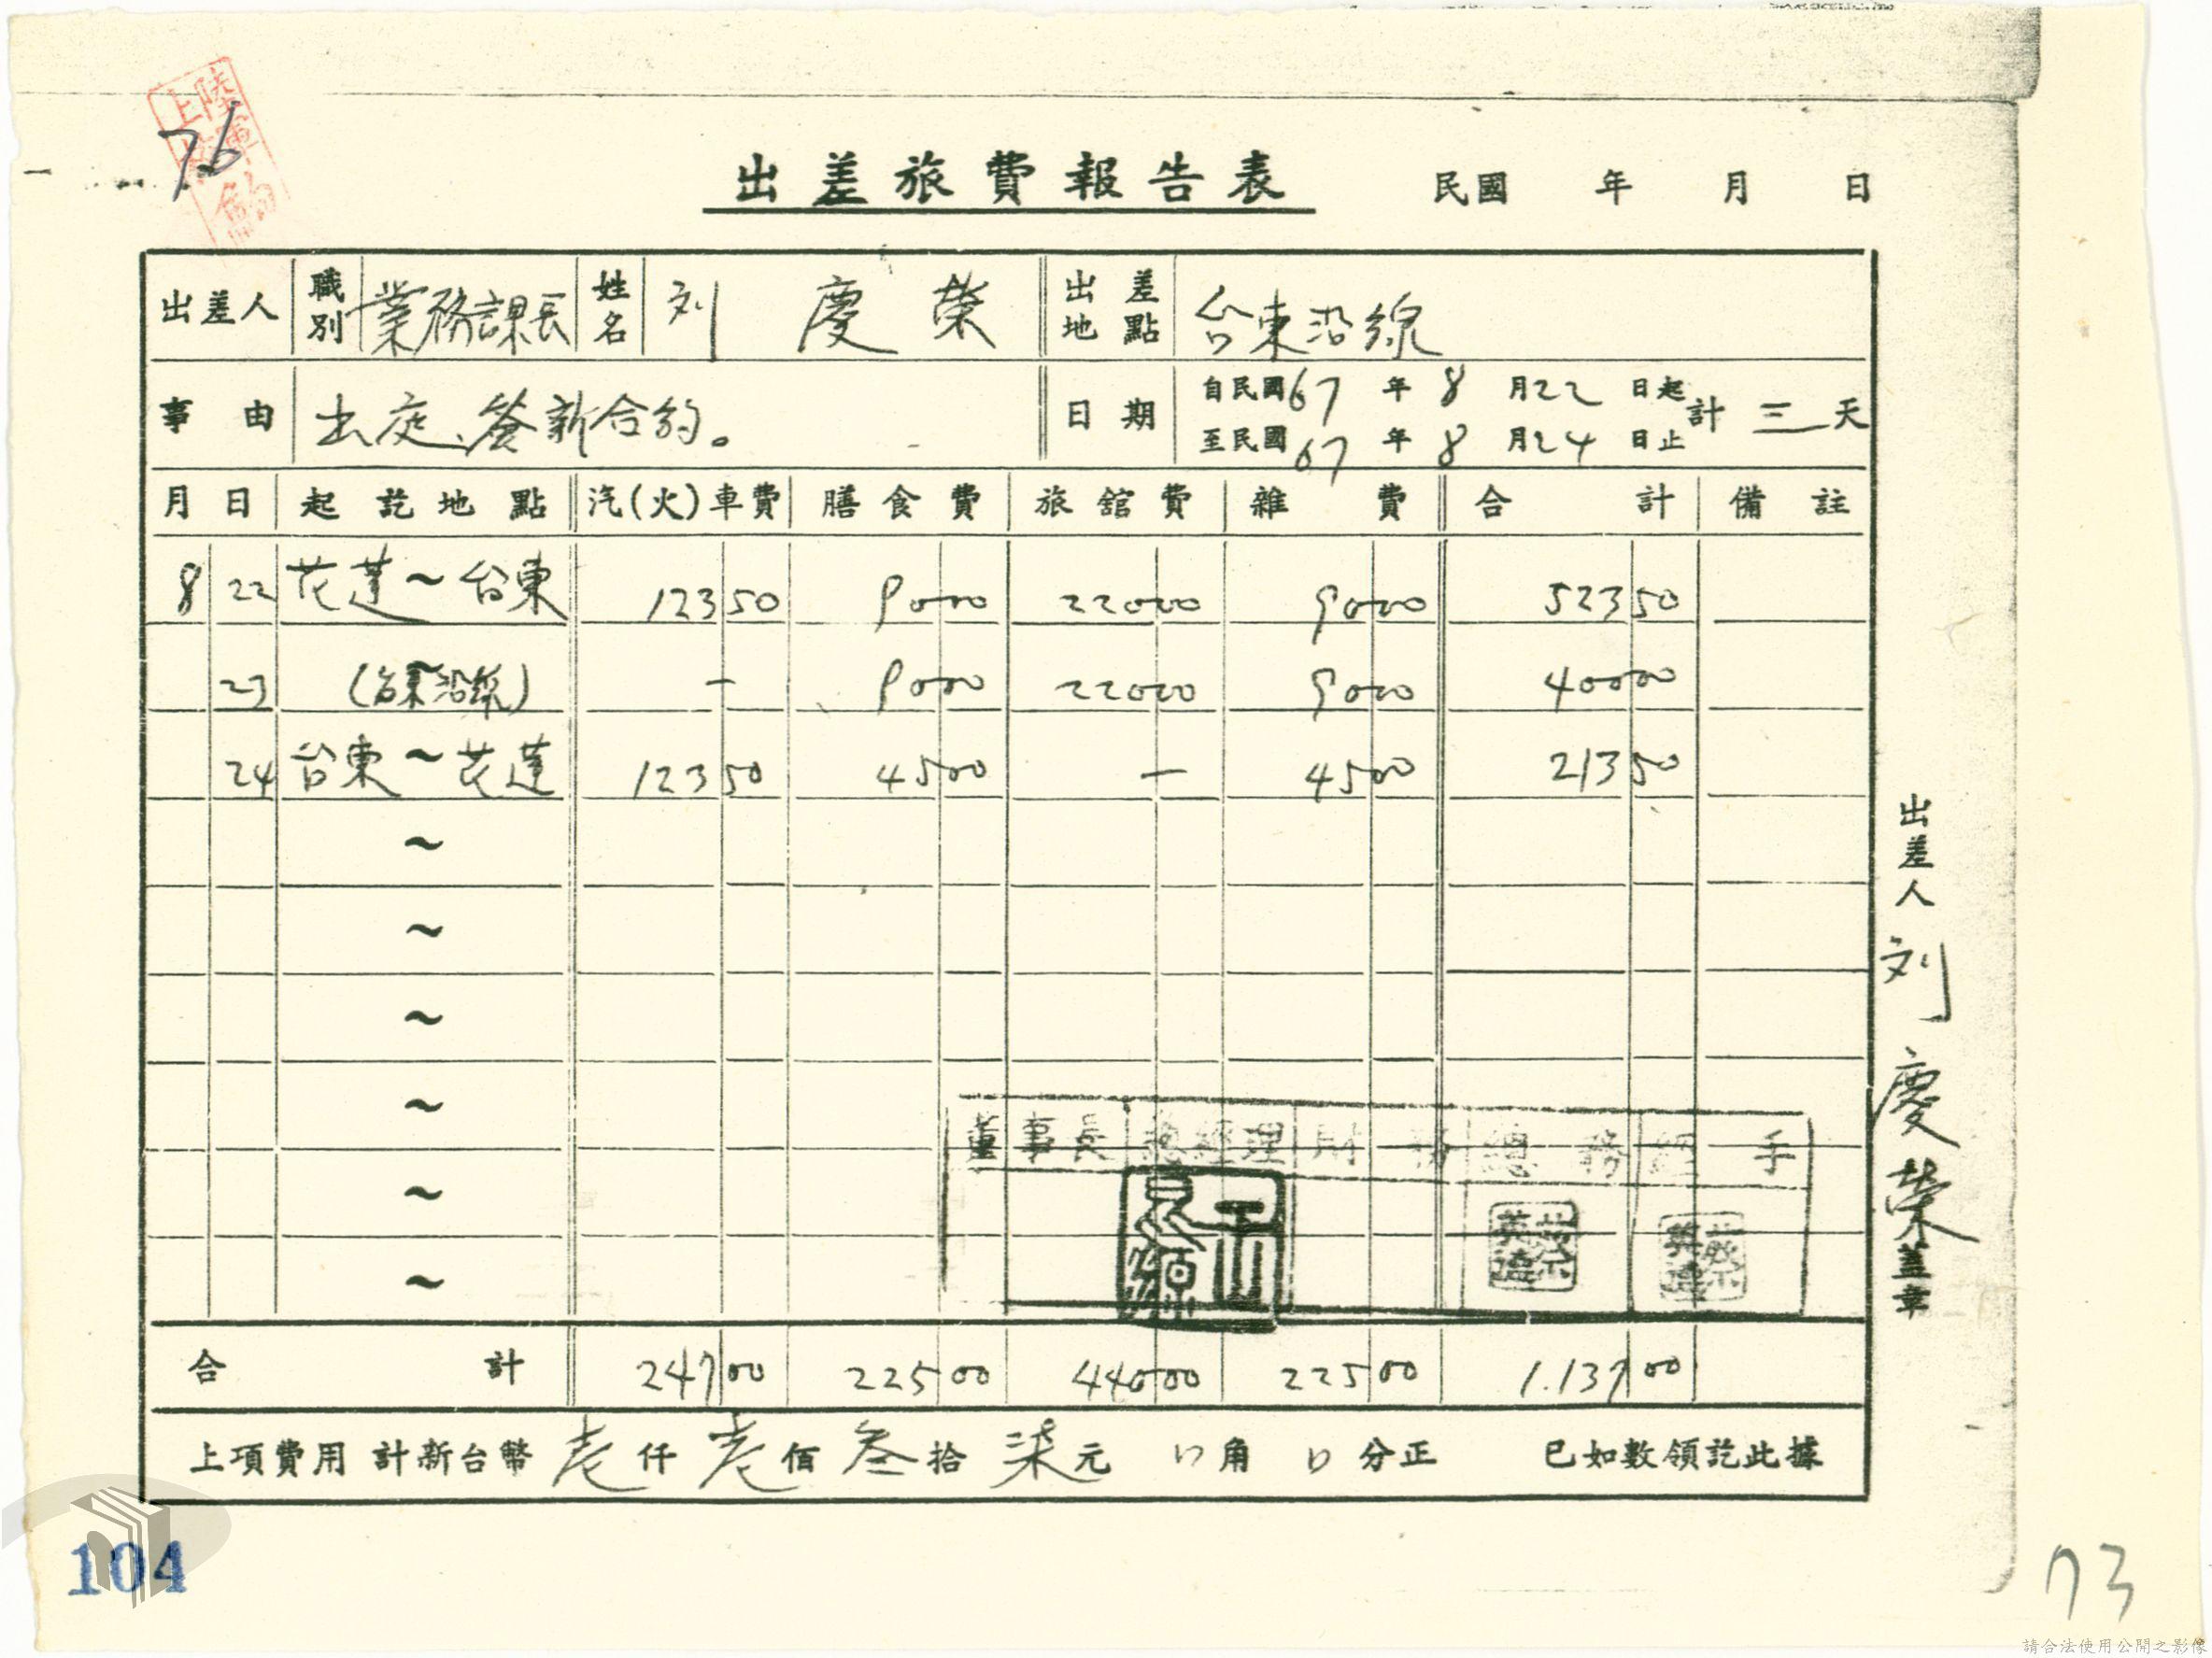 76
出差旅費報告表 民國 年 月 日
出差人 職別 業務課長 姓名 刘慶榮 出差地點 台東沿線
事由 出庭、簽新合約。 日期 自民國67年8月22日起 至民國67年8月24日止 計三天
月 日 起訖地點 汽(火)車費 膳食費 旅舘費 雜費 合計 備註
8 22 花蓮～台東 123 50 90 00 220 00 90 00 523 50
23 (台東沿線) — 90 00 220 00 90 00 400 00
24 台東～花蓮 123 50 45 00 — 45 00 213 50
～
～
～
～
～
～
董事長 總經理 財務 總務 經手
合計 247 00 225 00 440 00 225 00 1.137 00
上項費用計新台幣壱仟壱佰叁拾柒元 0角 0分正 已如數領訖此據
出差人 刘慶榮 蓋章
104
73
請合法使用公開之影像